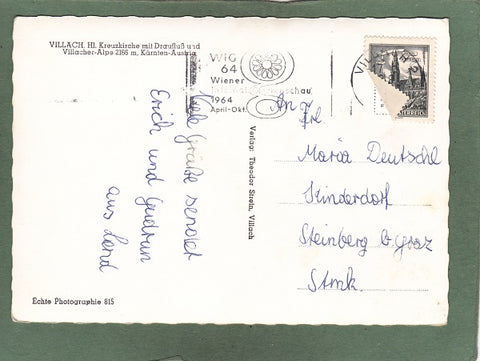 VILLACH, Hl. Kreuzkirche mit Draufluß und
Villacher-Alpe 2166 m, Kärnten-Austria
WIG
64
Wiener
1964
April-Okt.
Viele Grüße sendet
Erich und Gudrun
aus Land
Verlag: Theodor Strein, Villach
An
Frl
Maria Deutschl
Steinberg b. Graz
Stmk.
Echte Photographie 815